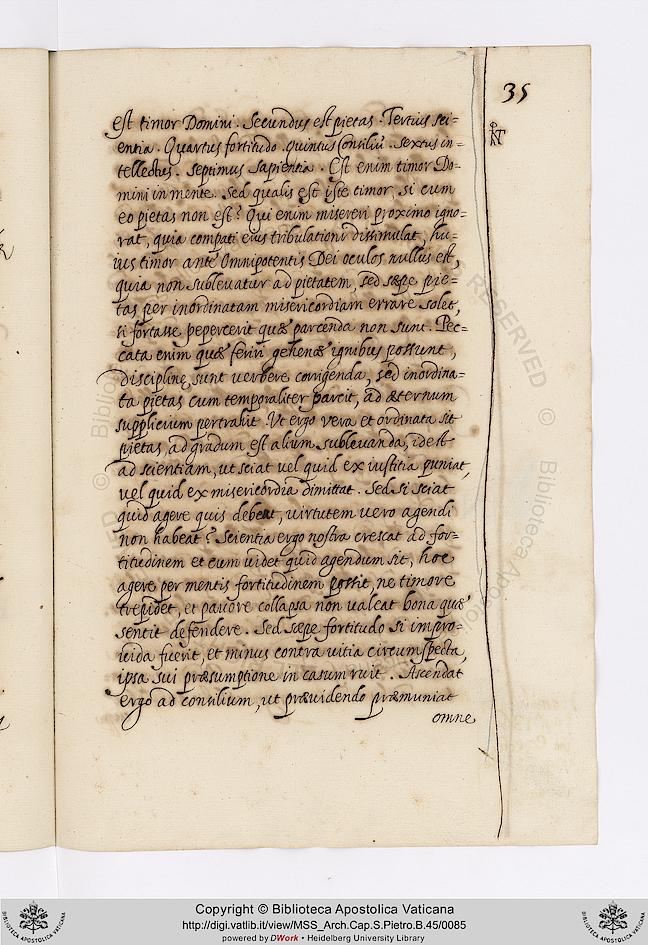 35
est timor Domini. Secundus est pietas. Tertius sci=
entia. Quartus fortitudo. Quintus Consiliũ. Sextus in=
tellectus. Septimus Sapientia. Est enim timor Do=
mini in mente. Sed qualis est iste timor, si cum
eo pietas non est? Qui enim misereri proximo igno=
rat, quia compati eius tribulationi dissimulat, hu=
ius timor ante Omnipotentis Dei oculos nullus est,
quia non sublevatur ad pietatem, sed sæpe pie=
tas per inordinatam misericordiam errare solet,
si fortasse pepercerit quæ parcenda non sunt. Pec=
cata enim quæ feriri gehenæ ignibus possunt,
discipline, sunt verbere corrigenda, sed inordina=
ta pietas cum temporaliter parcit, ad æternum
supplicium pertrahit. Ut ergo vera et ordinata sit
pietas, ad gradum est alium sublevanda, idest
ad scientiam, ut sciat vel quid ex iustitia puniat,
vel quid ex misericordia dimittat. Sed si sciat
quid agere quis debeat, virtutem vero agendi
non habeat? Scientia ergo nostra crescat ad for=
titudinem et cum videt quid agendum sit, hoc
agere per mentis fortitudinem possit, ne timore
trepidet, et pavore collapsa non valeat bona quæ
sentit defendere. Sed sæpe fortitudo si impro=
vida fuerit, et minus contra vitia circumspecta,
ipsa sui præsumptione in casum ruit. Ascendat
ergo ad consilium, ut prævidendo præmuniat
omne
Copyright © Biblioteca Apostolica Vaticana
http://digi.vatlib.it/view/MSS_Arch.Cap.S.Pietro.B.45/0085
powered by DWork • Heidelberg University Library